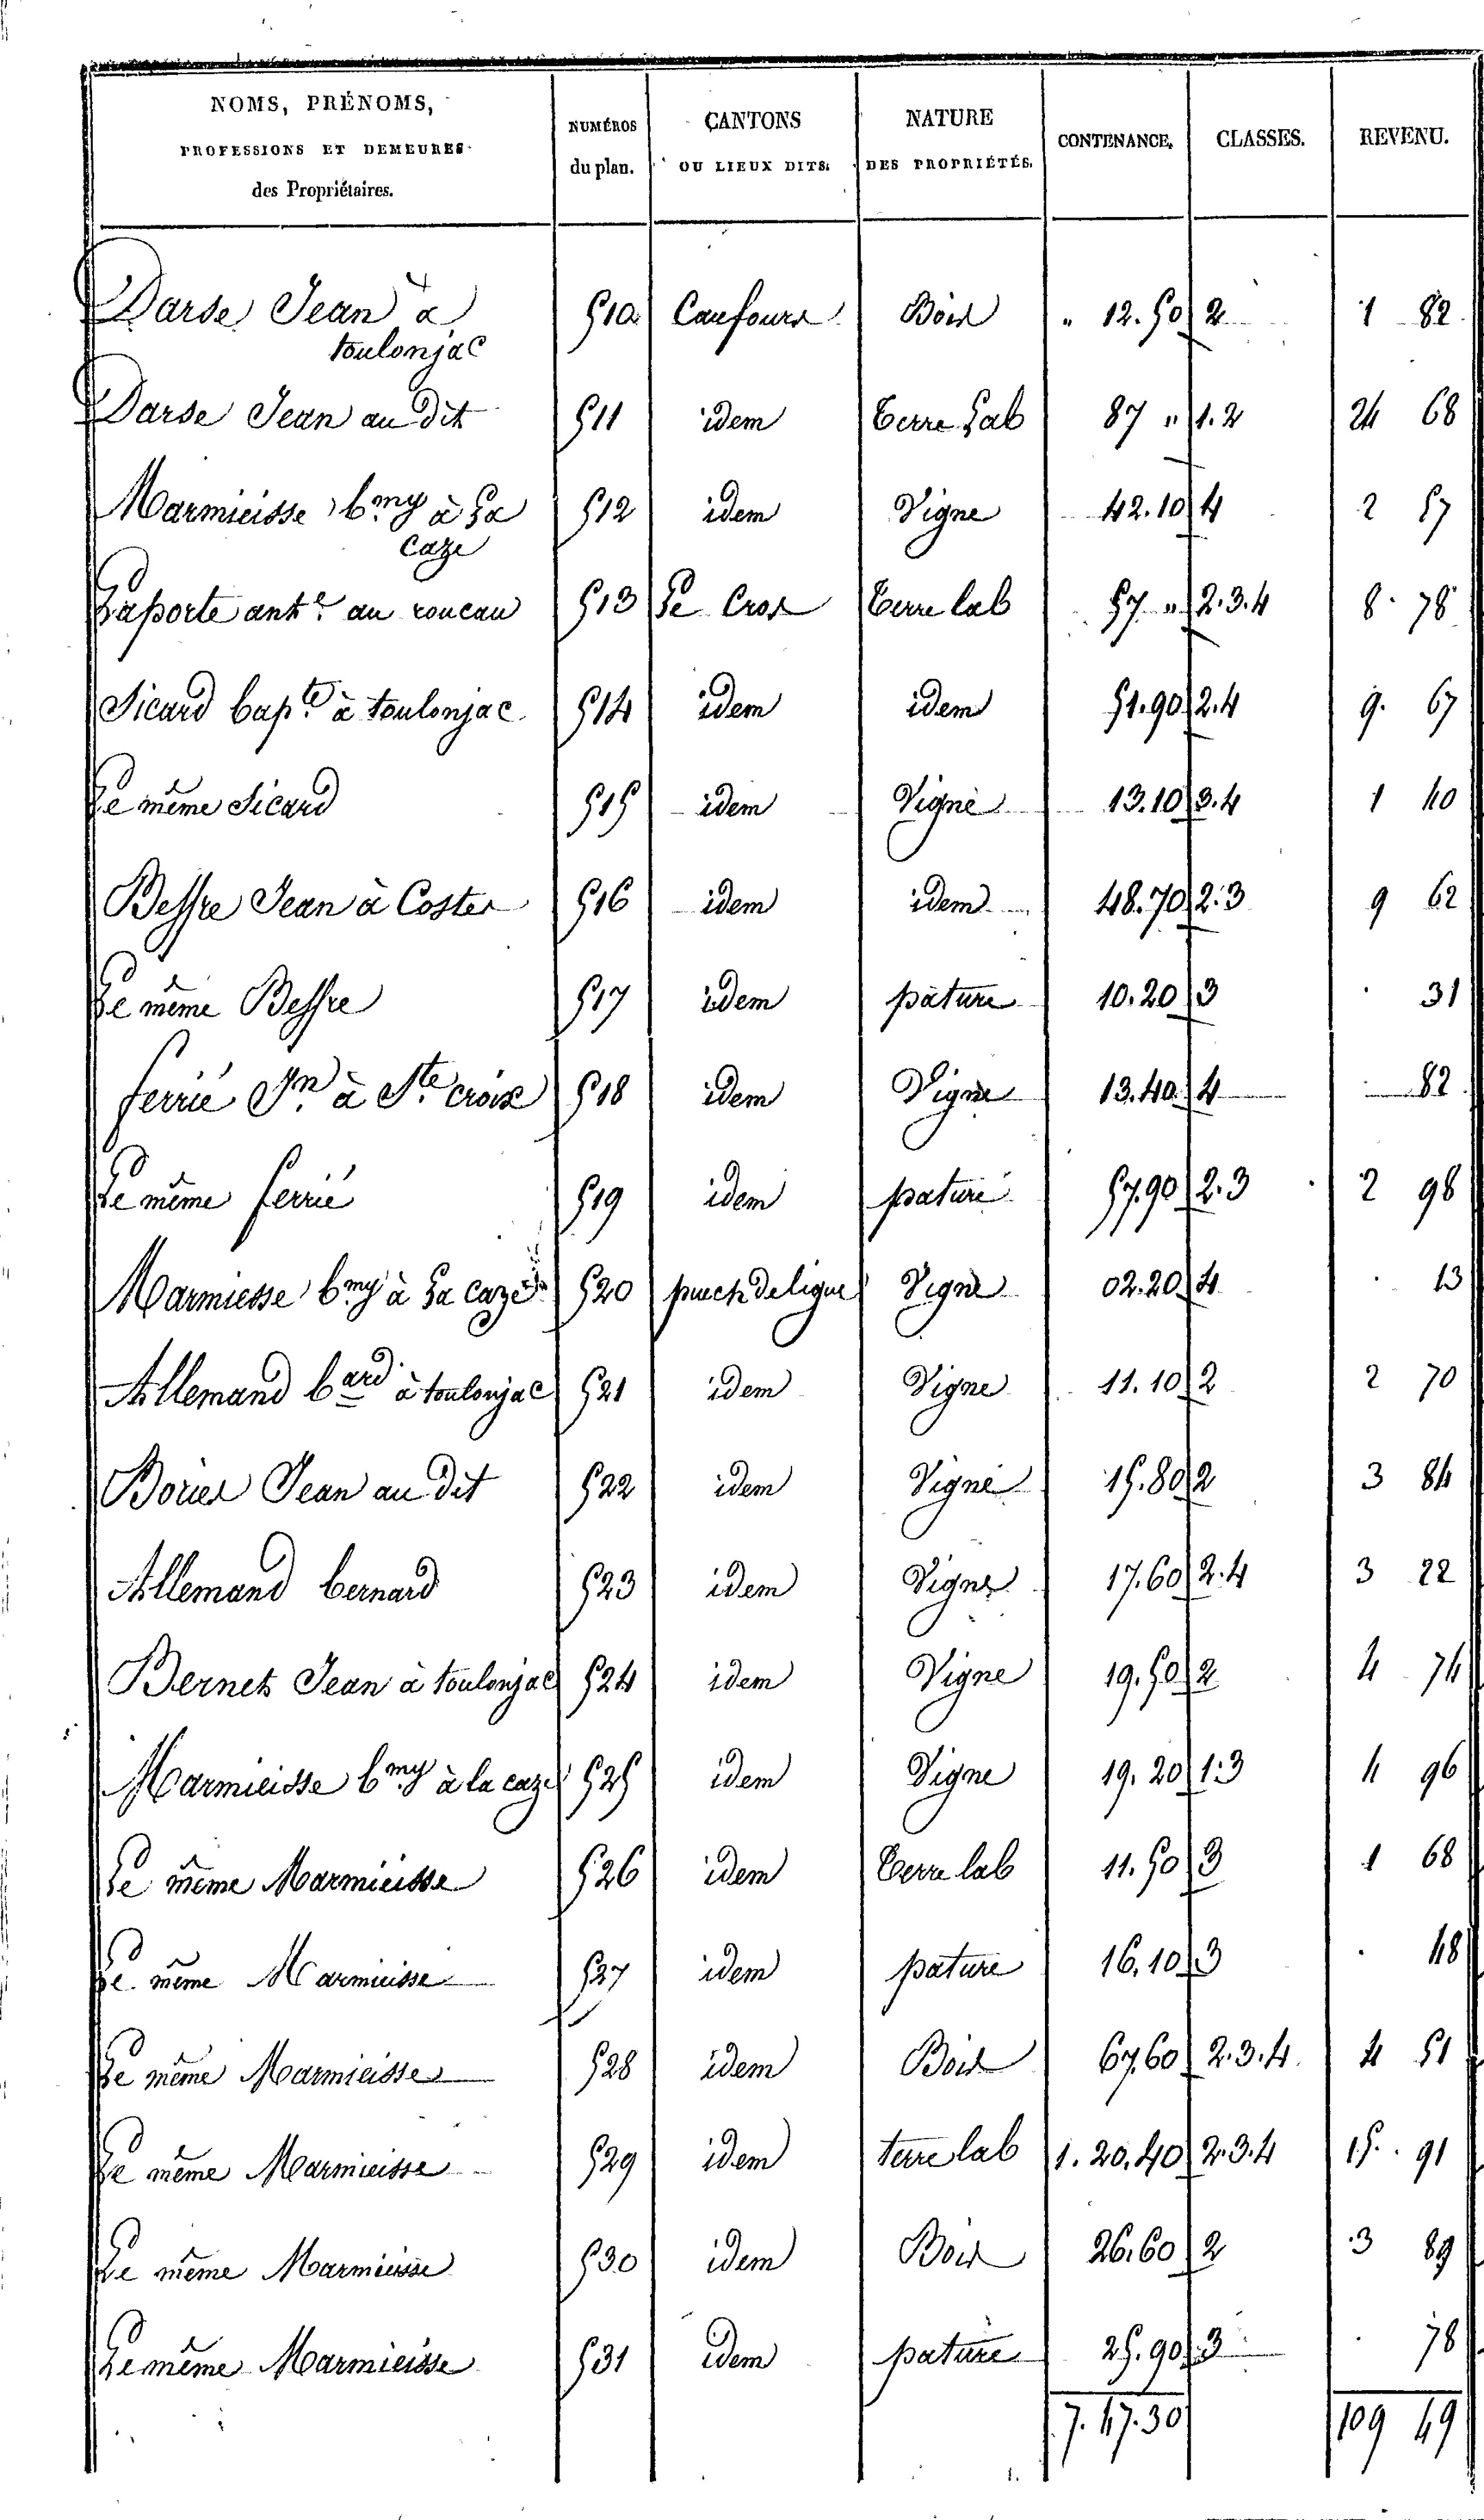 NOMS, PRÉNOMS,
PROFESSIONS ET DEMEURES
des Propriétaires.
NUMÉROS
du plan.
CANTONS
OU LIEUX DITS.
NATURE
DES PROPRIÉTÉS.
CONTENANCE.
CLASSES.
REVENU.
Darse Jean à 510 Caufours Bois " 12.50 2 1 82
toulonjac
Darse Jean au dit 511 idem Terre Lab 87 " 1.2 24 68
Marmieisse bmy à La 512 idem Vigne 42.10 4 2 57
Caze
Laporte ante au roucau 513 Le Cros Terre lab 57 " 2.3.4 8 78
Sicard bapte à toulonjac 514 idem idem 51.90 2.4 9 67
Le même Sicard 515 idem Vigne 13.10 3.4 1 40
Bessre Jean à Costes 516 idem idem 48.70 2.3 9 62
Le même Bessre 517 idem pature 10.20 3 . 31
ferrié Jn à Ste croix 518 idem Vigne 13.40 4 82
Le même ferrié 519 idem pature 57.90 2.3 2 98
Marmiesse bmy à La caze 520 puech de ligue Vigne 02.20 4 . 13
Allemand bard à toulonjac 521 idem Vigne 11.10 2 2 70
Bories Jean au dit 522 idem Vigne 15.80 2 3 84
Allemand bernard 523 idem Vigne 17.60 2.4 3 22
Bernet Jean à toulonjac 524 idem Vigne 19.50 2 4 74
Marmieisse bmy à la caze 525 idem Vigne 19.20 1.3 4 96
Le même Marmieisse 526 idem Terre lab 11.50 3 1 68
Le même Marmieisse 527 idem pature 16.10 3 . 48
Le même Marmieisse 528 idem Bois 67.60 2.3.4 4 51
Le même Marmieisse 529 idem terre lab 1.20.40 2.3.4 15 91
Le même Marmieisse 530 idem Bois 26.60 2 3 89
Le même Marmieisse 531 idem pature 25.90 3 . 78
7.47.30 109 49